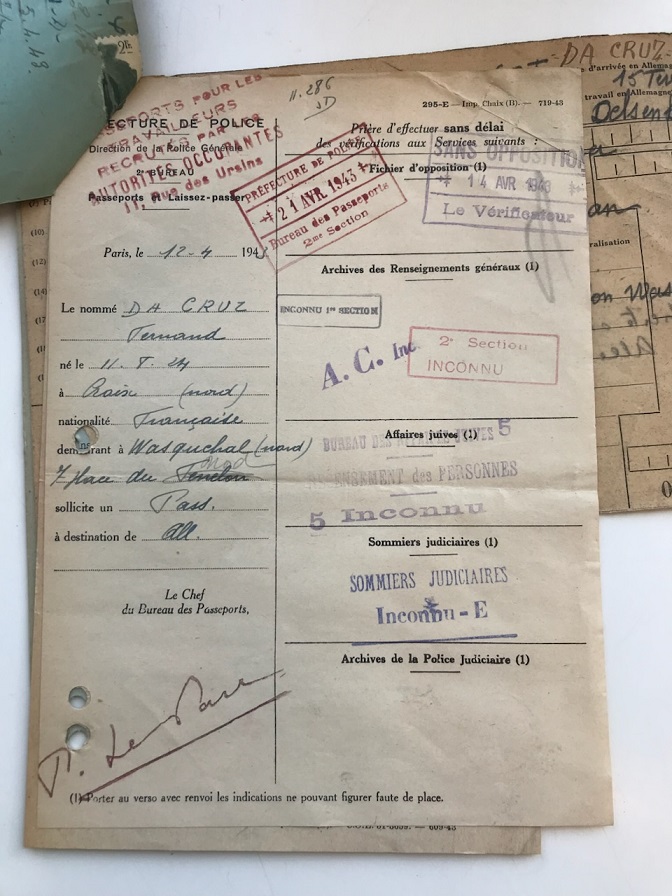 PASSEPORTS POUR LES
TRAVAILLEURS
RECRUTÉS PAR LES
AUTORITÉS OCCUPANTES
11, Rue des Ursins
PRÉFECTURE DE POLICE
Direction de la Police Générale
2e BUREAU
Passeports et Laissez-passer
Paris, le 12-4 1943
Le nommé DA CRUZ
Fernand
né le 11. 8. 24
à (nord)
nationalité Française
demeurant à Wasquehal (nord)
7 place du Fénelon
sollicite un Pass.
à destination de All.
Le Chef
du Bureau des Passeports,
11.286
295-E — Imp. Chaix (II). — 719-43
Prière d'effectuer sans délai
des vérifications aux Services suivants :
Fichier d'opposition (1)
SANS OPPOSITION
14 AVR 1943
Le Vérificateur
PRÉFECTURE DE POLICE
21 AVR. 1943
Bureau des Passeports
2me Section
Archives des Renseignements généraux (1)
INCONNU 1re SECTION
A. C. Inc
2e Section
INCONNU
Affaires juives (1)
BUREAU DES AFFAIRES JUIVES 5
RECENSEMENT des PERSONNES
5 Inconnu
Sommiers judiciaires (1)
SOMMIERS JUDICIAIRES
Inconnu - E
Archives de la Police Judiciaire (1)
(1) Porter au verso avec renvoi les indications ne pouvant figurer faute de place.
DA CRUZ
d'arrivée en Allemagne
travail en Allemagne
(10)
(12)